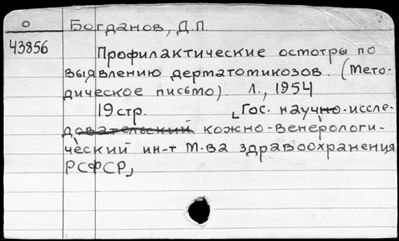 О Богданов, Д.П.
43856
Профилактические осмотры по
выявлению дерматомикозов. (Мето-
дическое письмо). Л., 1954
19 стр. [Гос. научно-иссле-
довательский кожно-венерологи-
ческий ин-т М-ва здравоохранения
РСФСР]